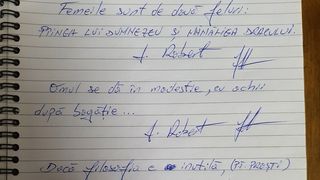 Femeile sunt de două feluri:
PÎINEA LUI DUMNEZEU ȘI MĂMĂLIGA DRACULUI.
J. Robert
Omul se dă în modestie, cu ochii
după bogăție...
J. Robert
Dacă filosofia e inutilă, (PT. PROȘTI)